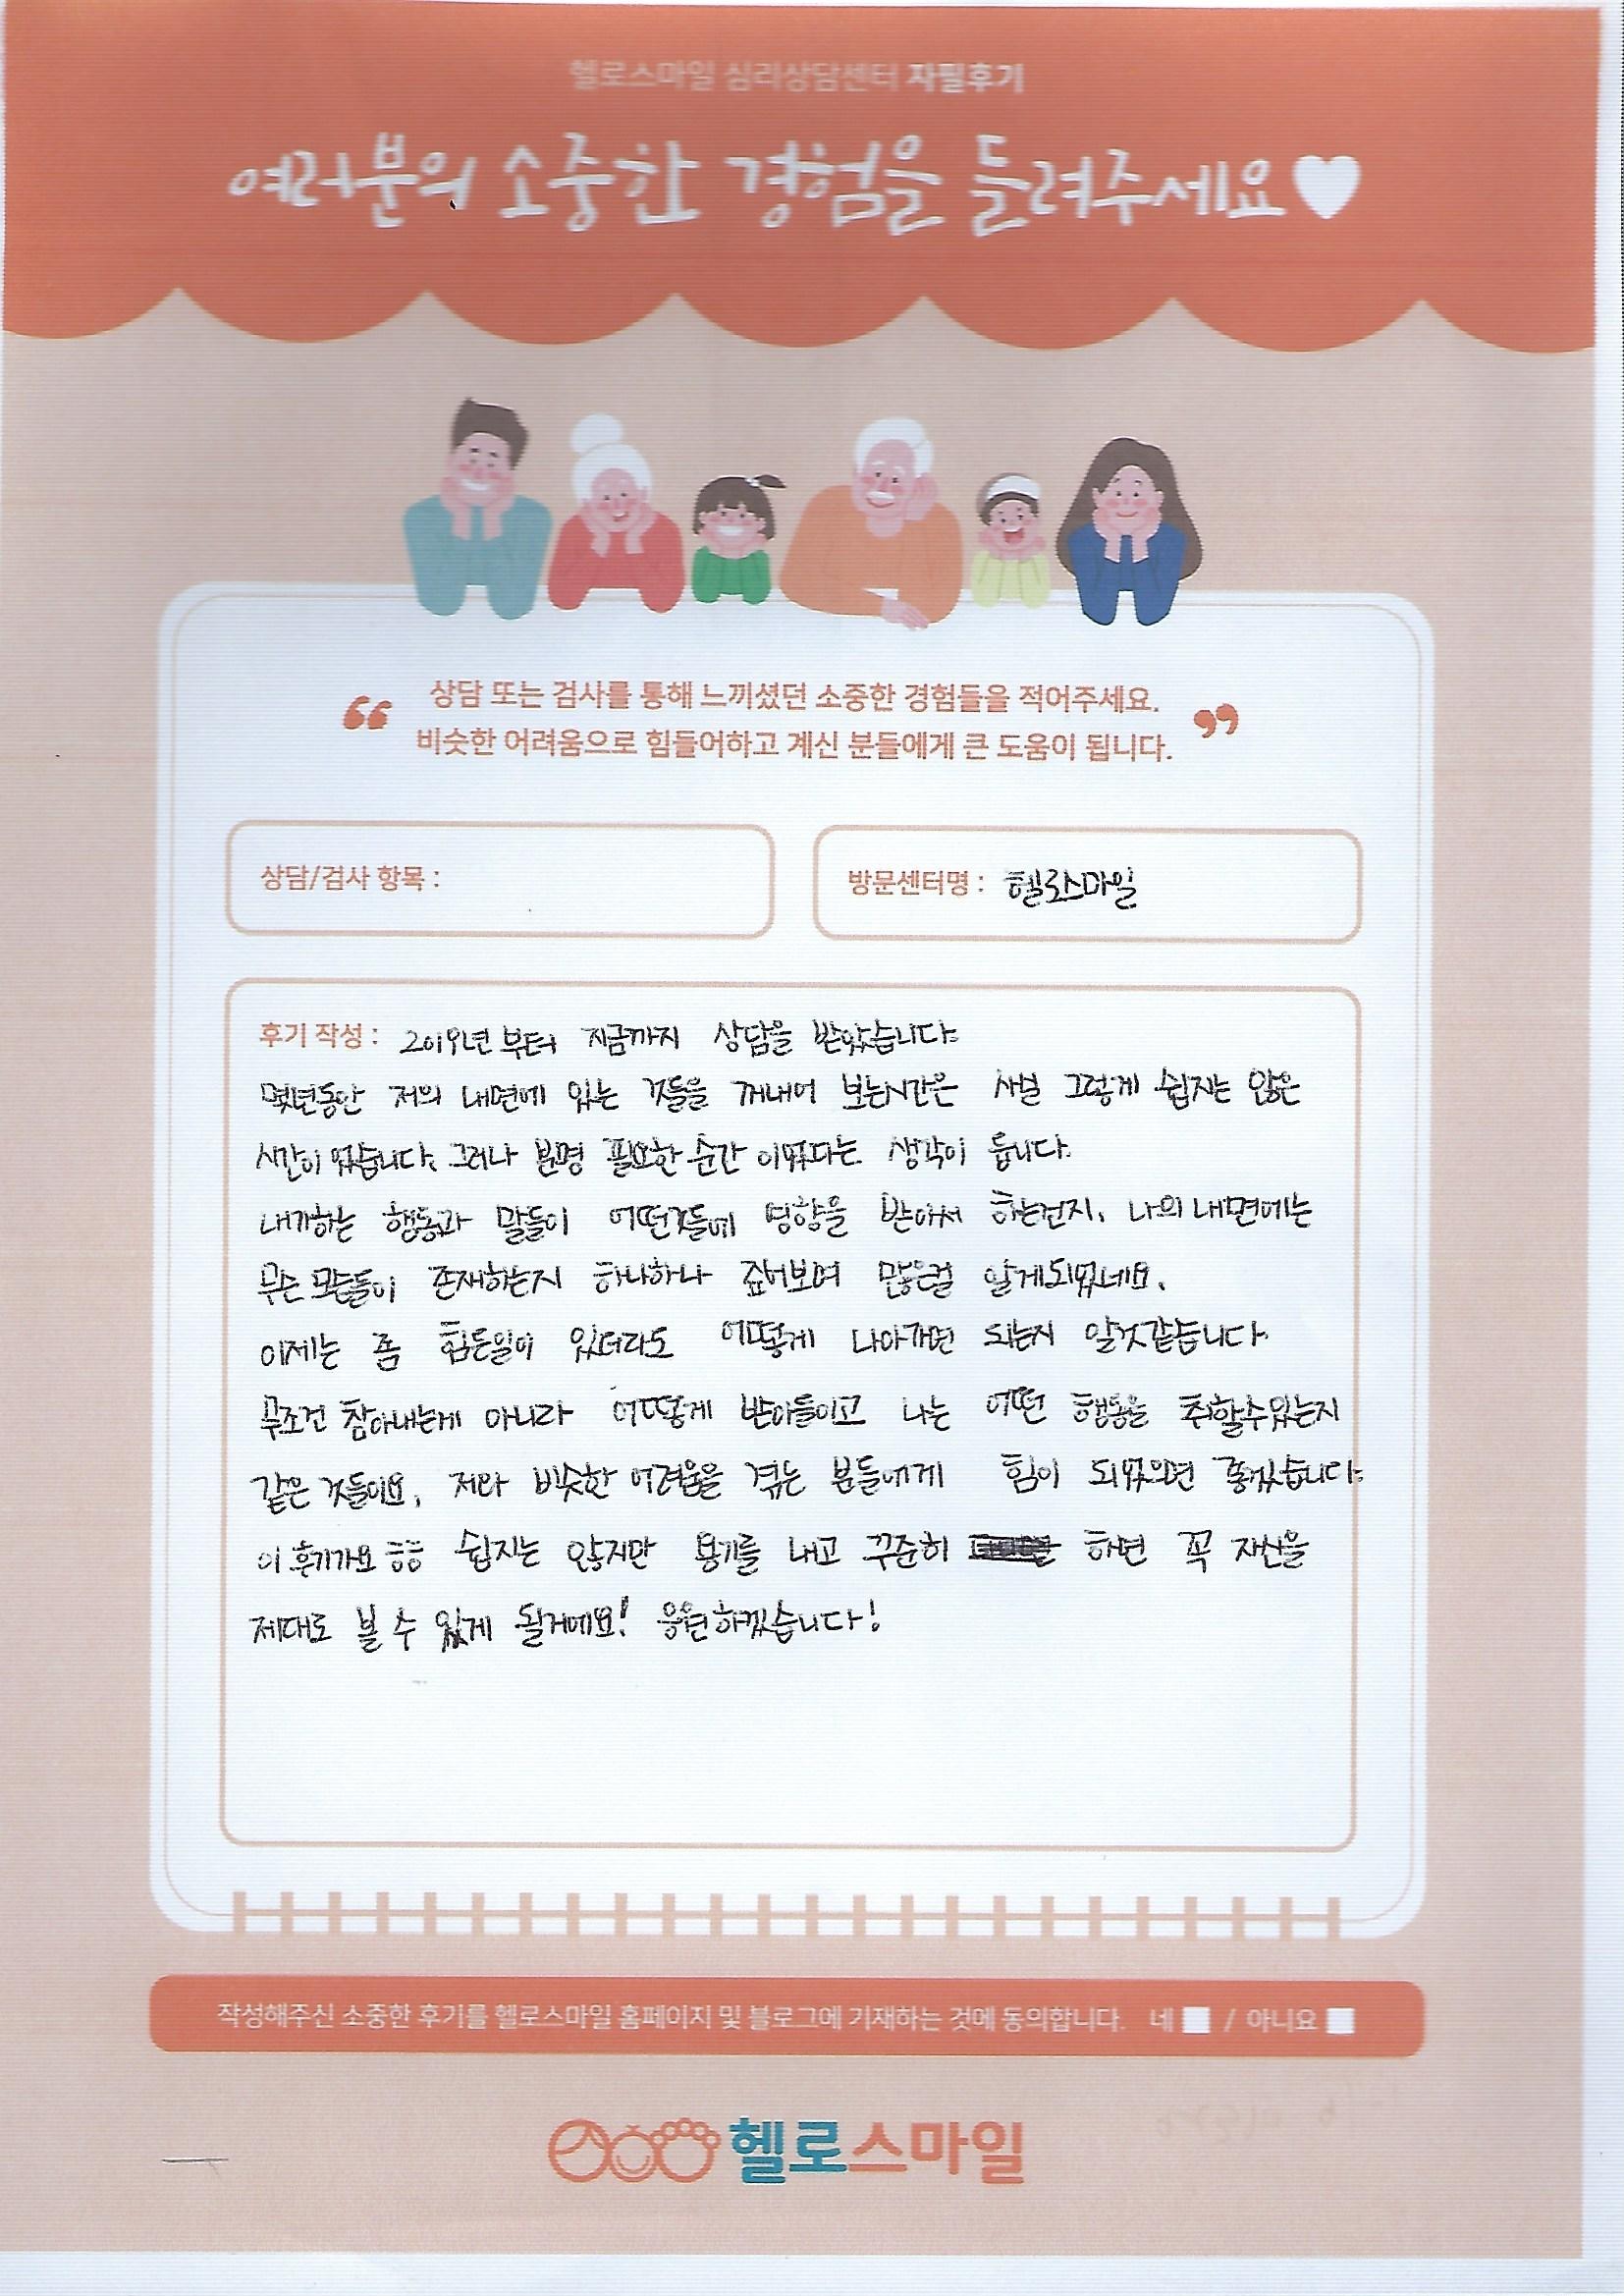 헬로스마일 심리상담센터 자필후기
여러분의 소중한 경험을 들려주세요♥
“ 상담 또는 검사를 통해 느끼셨던 소중한 경험들을 적어주세요.
비슷한 어려움으로 힘들어하고 계신 분들에게 큰 도움이 됩니다. ”
상담/검사 항목 :
방문센터명 : 헬로스마일
후기 작성 : 2019년 부터 지금까지 상담을 받았습니다.
몇년동안 저의 내면에 있는 것들을 꺼내어 보는시간은 사실 그렇게 쉽지는 않은
시간이 었습니다. 그러나 분명 필요한 순간 이었다는 생각이 듭니다.
내가하는 행동과 말들이 어떤것들에 영향을 받아서 하는건지, 나의 내면에는
무슨 모든들이 존재하는지 하나하나 짚어보며 많은걸 알게되었네요.
이제는 좀 힘든일이 있더라도 어떻게 나아가면 되는지 알것같습니다.
무조건 참아내는게 아니라 어떻게 받아들이고 나는 어떤 행동을 취할수있는지
같은 것들이요. 저와 비슷한 어려움을 겪는 분들에게 힘이 되었으면 좋겠습니다.
이 후기가요 ㅎㅎ 쉽지는 않지만 용기를 내고 꾸준히 하면 꼭 자신을
제대로 볼 수 있게 될거에요! 응원하겠습니다!
작성해주신 소중한 후기를 헬로스마일 홈페이지 및 블로그에 기재하는 것에 동의합니다. 네 / 아니요
헬로스마일